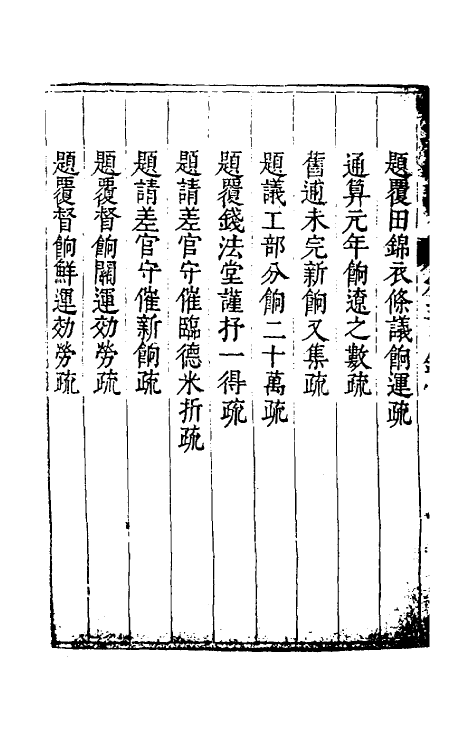 題覆田錦衣條議餉運疏
通算元年餉遼之數疏
舊逋未完新餉又集疏
題議工部分餉二十萬疏
題覆錢法堂謹抒一得疏
題請差官守催臨德米折疏
題請差官守催新餉疏
題覆督餉關運効勞疏
題覆督餉鮮運効勞疏